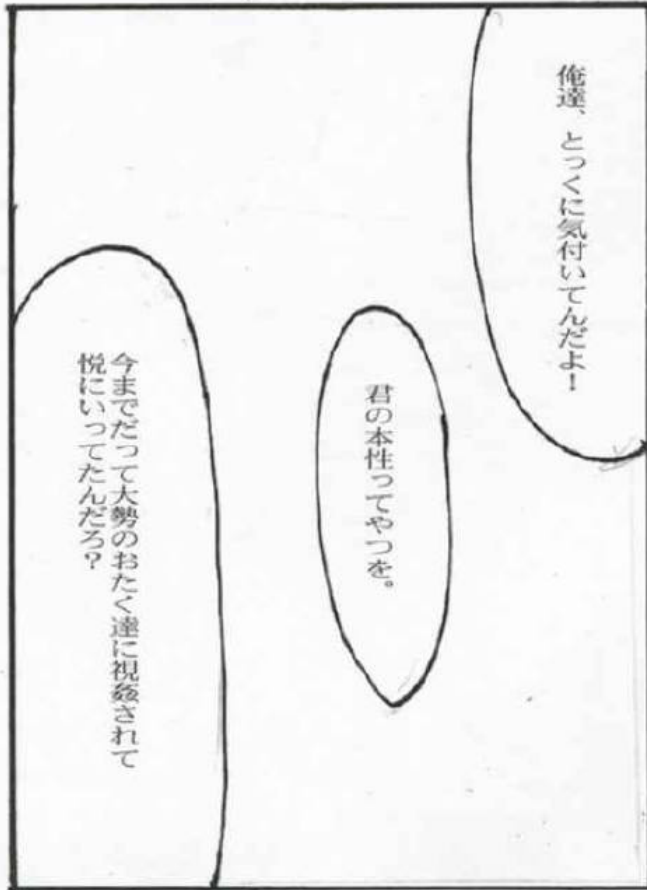 俺達、とっくに気付いてんだよ！
君の本性ってやつを。
今までだって大勢のおたく達に視姦されて
悦にいってたんだろ？